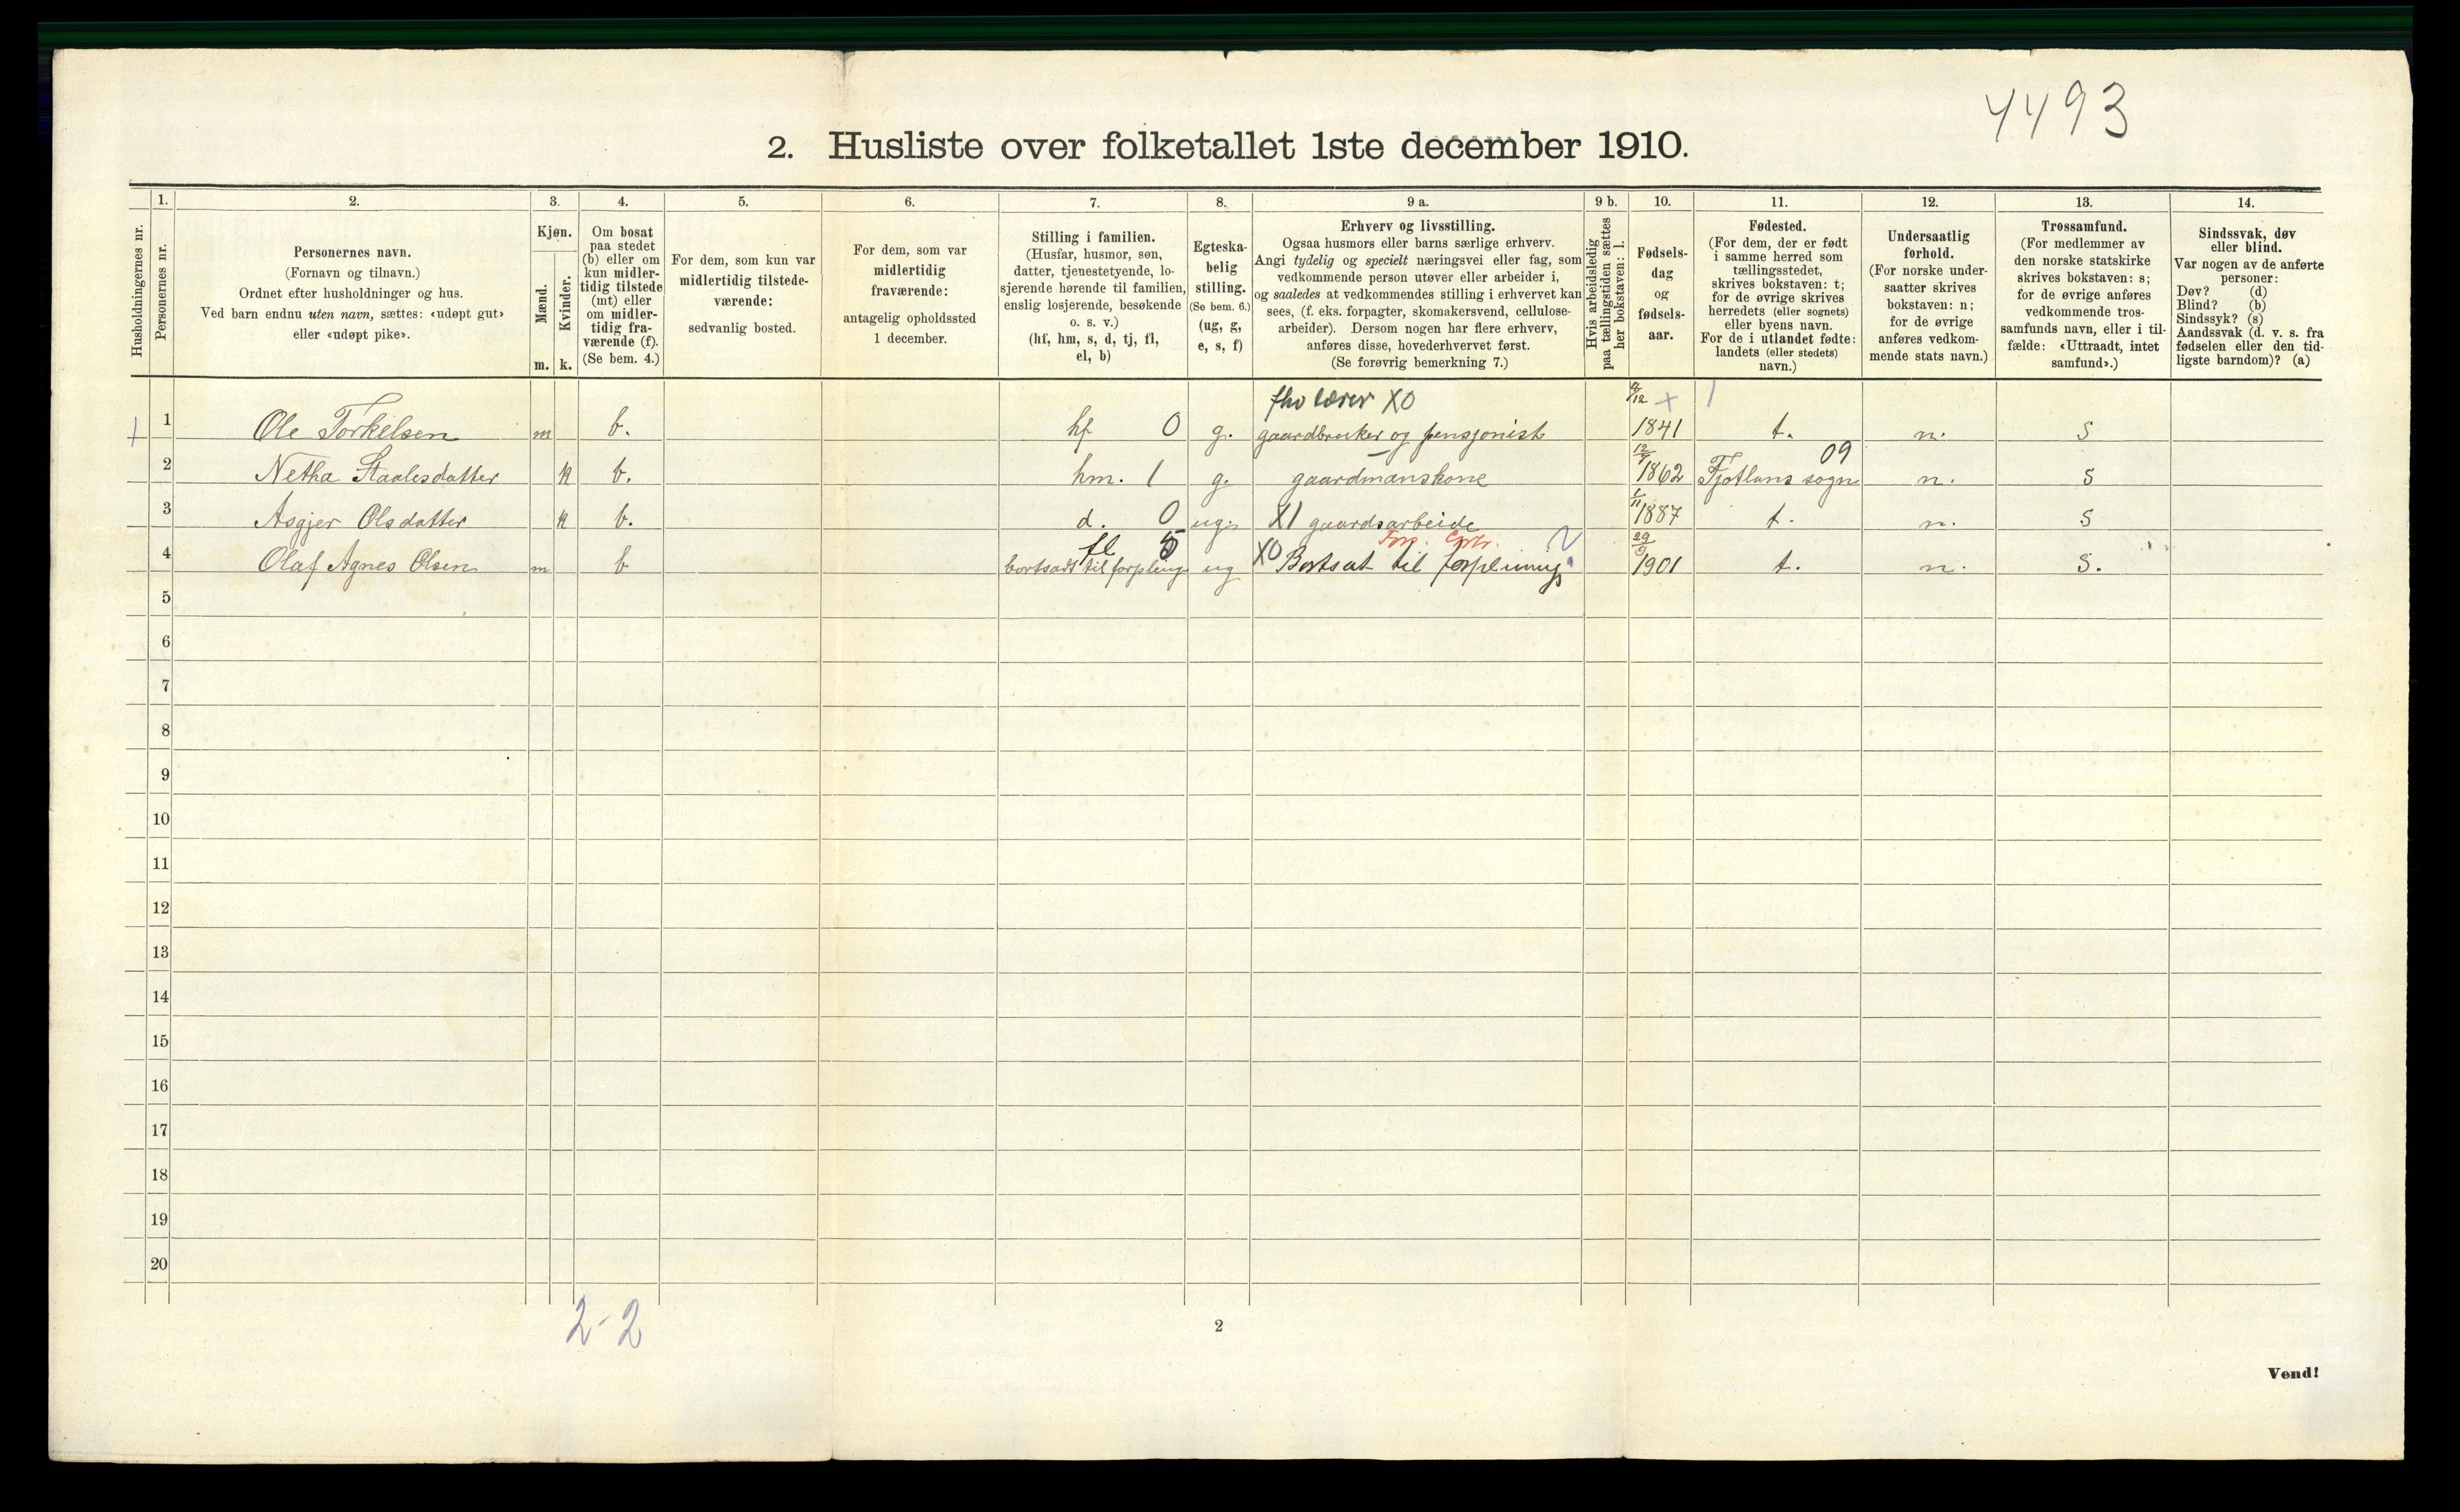 4493
2. Husliste over folketallet 1ste december 1910.
1. 2. 3. 4. 5. 6. 7. 8. 9 a. 9 b. 10. 11. 12. 13. 14.
Husholdningernes nr.
Personernes nr.
Personernes navn.
(Fornavn og tilnavn.)
Ordnet efter husholdninger og hus.
Ved barn endnu uten navn, sættes: «udøpt gut»
eller «udøpt pike».
Kjøn.
Mænd.
Kvinder.
m. k.
Om bosat
paa stedet
(b) eller om
kun midler-
tidig tilstede
(mt) eller
om midler-
tidig fra-
værende (f).
(Se bem. 4.)
For dem, som kun var
midlertidig tilstede-
værende:
sedvanlig bosted.
For dem, som var
midlertidig
fraværende:
antagelig opholdssted
1 december.
Stilling i familien.
(Husfar, husmor, søn,
datter, tjenestetyende, lo-
sjerende hørende til familien,
enslig losjerende, besøkende
o. s. v.)
(hf, hm, s, d, tj, fl,
el, b)
Egteska-
belig
stilling.
(Se bem. 6.)
(ug, g,
e, s, f)
Erhverv og livsstilling.
Ogsaa husmors eller barns særlige erhverv.
Angi tydelig og specielt næringsvei eller fag, som
vedkommende person utøver eller arbeider i,
og saaledes at vedkommendes stilling i erhvervet kan
sees, (f. eks. forpagter, skomakersvend, cellulose-
arbeider). Dersom nogen har flere erhverv,
anføres disse, hovederhvervet først.
(Se forøvrig bemerkning 7.)
Hvis arbeidsledig
paa tællingstiden sættes
her bokstaven: l.
Fødsels-
dag
og
fødsels-
aar.
Fødested.
(For dem, der er født
i samme herred som
tællingsstedet,
skrives bokstaven: t;
for de øvrige skrives
herredets (eller sognets)
eller byens navn.
For de i utlandet fødte:
landets (eller stedets)
navn.)
Undersaatlig
forhold.
(For norske under-
saatter skrives
bokstaven: n;
for de øvrige
anføres vedkom-
mende stats navn.)
Trossamfund.
(For medlemmer av
den norske statskirke
skrives bokstaven: s;
for de øvrige anføres
vedkommende tros-
samfunds navn, eller i til-
fælde: «Uttraadt, intet
samfund».)
Sindssvak, døv
eller blind.
Var nogen av de anførte
personer:
Døv? (d)
Blind? (b)
Sindssyk? (s)
Aandssvak (d. v. s. fra
fødselen eller den tid-
ligste barndom)? (a)
fhv lærer X0
1 Ole Torkelsen m b. hf 0 g. gaardbruker og pensjonist 1841 t. n. s
09
2 Netha Staalesdatter k b. hm. 1 g. gaardmanskone 1862 Fjotlans sogn n. s
3 Asgjer Olsdatter k b. d. 0 ug. X1 gaardsarbeide 1887 t. n. s
fl 5
4 Olaf Agnes Olsen m b bortsadt til forpleing ug X0 Bortsat til forpleining 29/9 1901 t. n. s.
5
6
7
8
9
10
11
12
13
14
15
16
17
18
19
20
2-2
2
Vend!